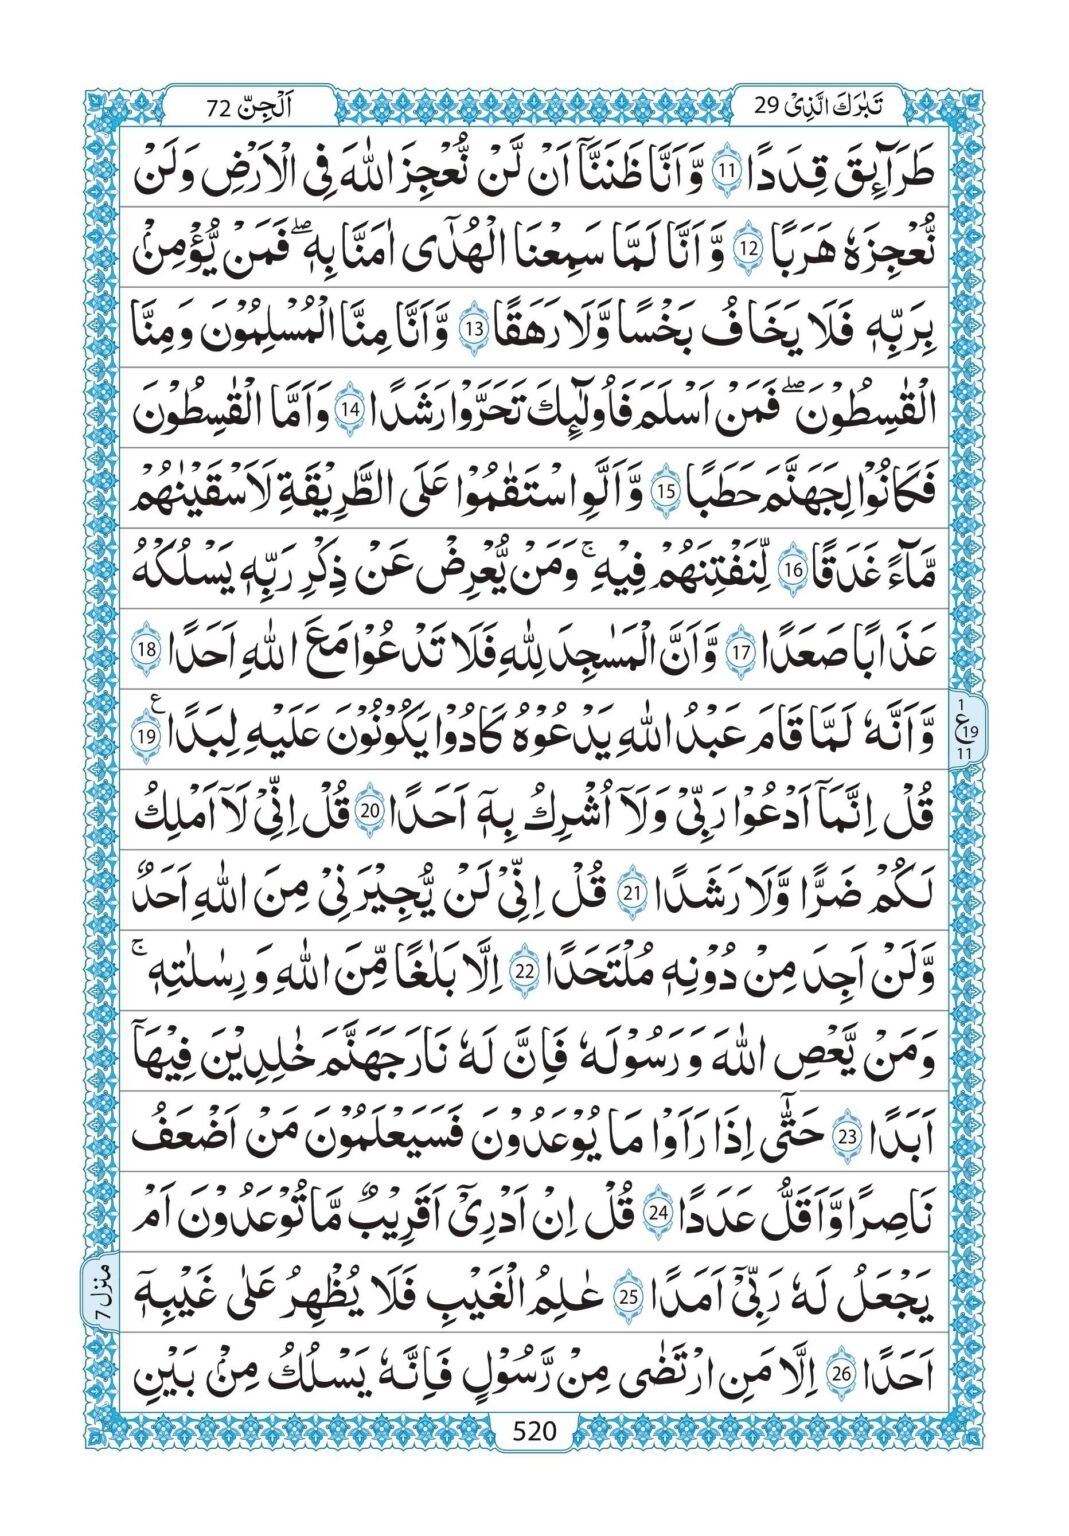 تَبٰرَكَ الَّذِیْ 29
اَلْجِنّ 72
طَرَآىِٕقَ قِدَدًا 11 وَّ اَنَّا ظَنَنَّاۤ اَنْ لَّنْ نُّعْجِزَ اللّٰهَ فِی الْاَرْضِ وَ لَنْ
نُّعْجِزَهٗ هَرَبًا 12 وَّ اَنَّا لَمَّا سَمِعْنَا الْهُدٰۤى اٰمَنَّا بِهٖؕۖ فَمَنْ یُّؤْمِنْۢ
بِرَبِّهٖ فَلَا یَخَافُ بَخْسًا وَّ لَا رَهَقًا 13 وَّ اَنَّا مِنَّا الْمُسْلِمُوْنَ وَ مِنَّا
الْقٰسِطُوْنَۖ فَمَنْ اَسْلَمَ فَاُولٰٓىِٕكَ تَحَرَّوْا رَشَدًا 14 وَ اَمَّا الْقٰسِطُوْنَ
فَكَانُوْا لِجَهَنَّمَ حَطَبًا 15 وَّ اَنْ لَّوِ اسْتَقٰمُوْا عَلَى الطَّرِیْقَةِ لَاَسْقَیْنٰهُمْ
مَّآءً غَدَقًا 16 لِّنَفْتِنَهُمْ فِیْهِۚ وَ مَنْ یُّعْرِضْ عَنْ ذِكْرِ رَبِّهٖ یَسْلُكْهُ
عَذَابًا صَعَدًا 17 وَّ اَنَّ الْمَسٰجِدَ لِلّٰهِ فَلَا تَدْعُوْا مَعَ اللّٰهِ اَحَدًا 18
وَّ اَنَّهٗ لَمَّا قَامَ عَبْدُ اللّٰهِ یَدْعُوْهُ كَادُوْا یَكُوْنُوْنَ عَلَیْهِ لِبَدًا 19 ع
1 ع 19 11
قُلْ اِنَّمَاۤ اَدْعُوْا رَبِّیْ وَ لَاۤ اُشْرِكُ بِهٖۤ اَحَدًا 20 قُلْ اِنِّیْ لَاۤ اَمْلِكُ
لَكُمْ ضَرًّا وَّ لَا رَشَدًا 21 قُلْ اِنِّیْ لَنْ یُّجِیْرَنِیْ مِنَ اللّٰهِ اَحَدٌ
وَّ لَنْ اَجِدَ مِنْ دُوْنِهٖ مُلْتَحَدًا 22 اِلَّا بَلٰغًا مِّنَ اللّٰهِ وَ رِسٰلٰتِهٖۚ
وَ مَنْ یَّعْصِ اللّٰهَ وَ رَسُوْلَهٗ فَاِنَّ لَهٗ نَارَ جَهَنَّمَ خٰلِدِیْنَ فِیْهَاۤ
اَبَدًا 23 حَتّٰۤى اِذَا رَاَوْا مَا یُوْعَدُوْنَ فَسَیَعْلَمُوْنَ مَنْ اَضْعَفُ
نَاصِرًا وَّ اَقَلُّ عَدَدًا 24 قُلْ اِنْ اَدْرِیْۤ اَقَرِیْبٌ مَّا تُوْعَدُوْنَ اَمْ
یَجْعَلُ لَهٗ رَبِّیْۤ اَمَدًا 25 عٰلِمُ الْغَیْبِ فَلَا یُظْهِرُ عَلٰى غَیْبِهٖۤ
منزل 7
اَحَدًا 26 اِلَّا مَنِ ارْتَضٰى مِنْ رَّسُوْلٍ فَاِنَّهٗ یَسْلُكُ مِنْۢ بَیْنِ
520